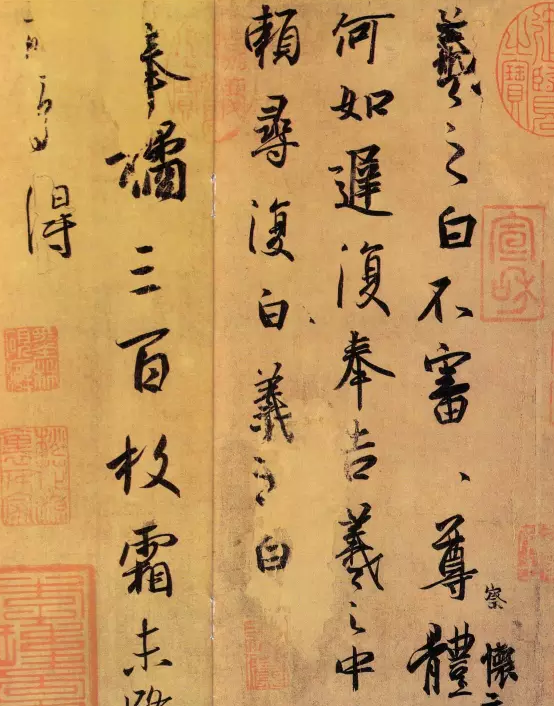 宣和
察
懷
羲之白不審、尊體
何如遲復奉告羲之中
賴尋復白羲之白
奉橘三百枚霜未
得